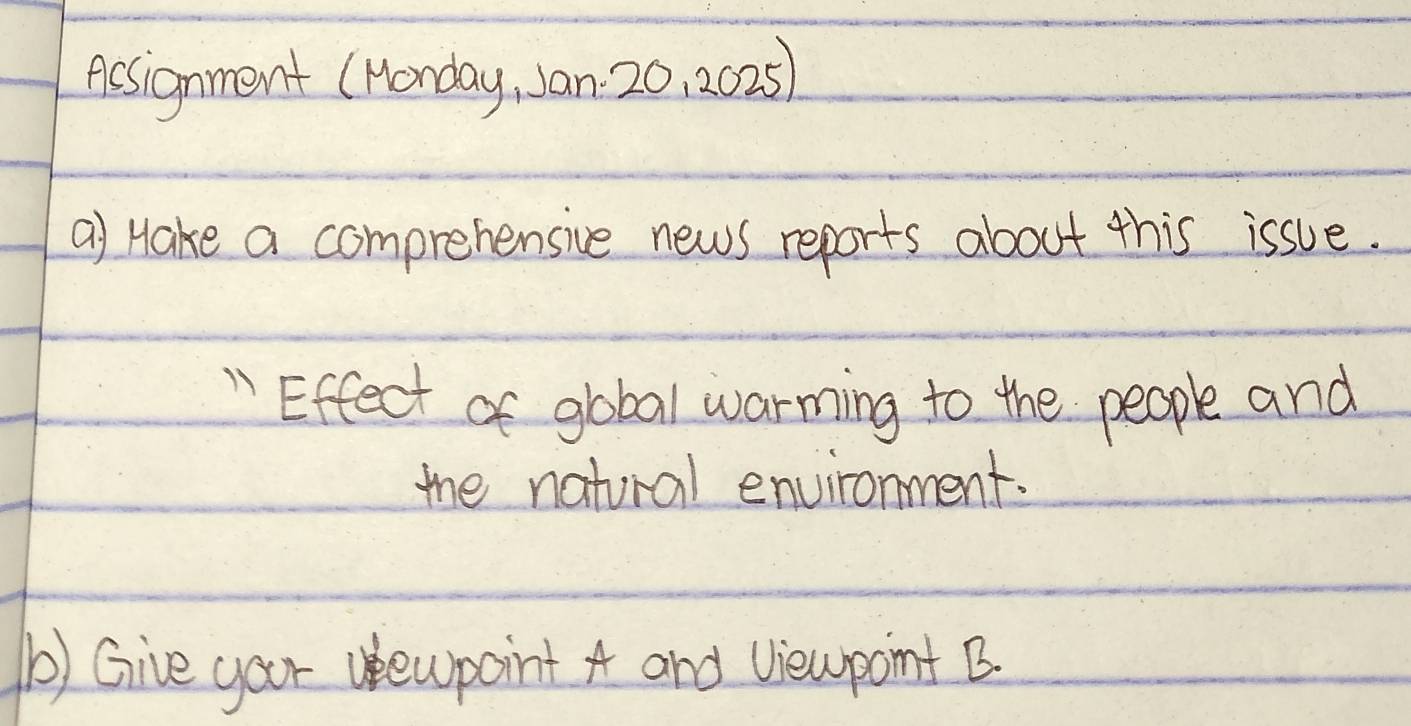 Assignment (Monday, Jan. 20, 2025)
a) Make a comprehensive news reports about this issue.
" Effect of global warming to the people and
the natural environment.
b) Give your viewpoint A and Viewpoint B.